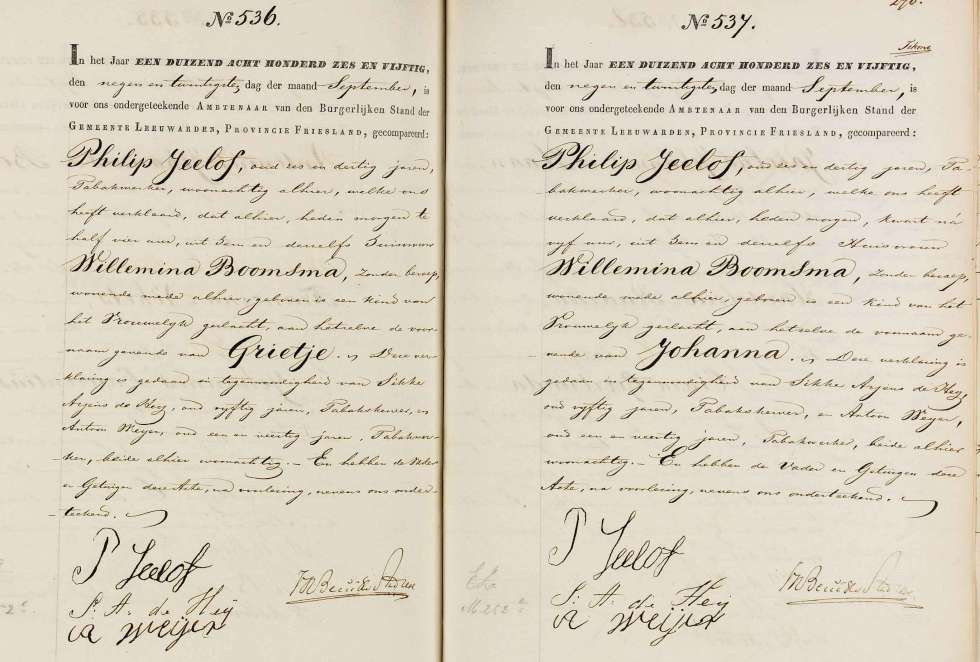 № 536.
In het Jaar EEN DUIZEND ACHT HONDERD ZES EN VIJFTIG,
den negen en twintigste, dag der maand September, is
voor ons ondergeteekende AMBTENAAR van den Burgerlijken Stand der
GEMEENTE LEEUWARDEN, PROVINCIE FRIESLAND, gecompareerd:
Philip Jeelof, oud zes en dertig jaren,
Tabakwerker, woonachtig alhier, welke ons
heeft verklaard, dat alhier, heden morgen te
half vier uur, uit hem en deszelfs Huisvrouw
Willemina Boomsma, zonder beroep,
wonende mede alhier, geboren is een kind van
het Vrouwelijk geslacht, aan hetzelve de voor-
naam gevende van Grietje. Deze ver-
klaring is gedaan in tegenwoordigheid van Sikke
Arjens de Heij, oud vijftig jaren, Tabakskerver, en
Antoon Weijer, oud een en veertig jaren, Tabakwer-
ker, beide alhier woonachtig. – En hebben de Vader
en Getuigen deze Acte, na voorlezing, nevens ons onder-
teekend.
P Jeelof
S. A. de Heij
A Weijer
№ 537.
In het Jaar EEN DUIZEND ACHT HONDERD ZES EN VIJFTIG,
den negen en twintigste, dag der maand September, is
voor ons ondergeteekende AMBTENAAR van den Burgerlijken Stand der
GEMEENTE LEEUWARDEN, PROVINCIE FRIESLAND, gecompareerd:
Philip Jeelof, oud zes en dertig jaren, Ta-
bakwerker, woonachtig alhier, welke ons heeft
verklaard, dat alhier, heden morgen, kwart ná
vyf uur, uit hem en deszelfs Huisvrouw
Willemina Boomsma, zonder beroep,
wonende mede alhier, geboren is een kind van het
Vrouwelijk geslacht, aan hetzelve de voornaam ge-
vende van Johanna. Deze verklaring is
gedaan in tegenwoordigheid van Sikke Arjens de Heij,
oud vijftig jaren, Tabakskerver, en Antoon Weijer,
oud een en veertig jaren, Tabakwerker, beide alhier
woonachtig. – En hebben de Vader en Getuigen deze
Acte, na voorlezing, nevens ons onderteekend.
P Jeelof
S. A. de Heij
A Weijer